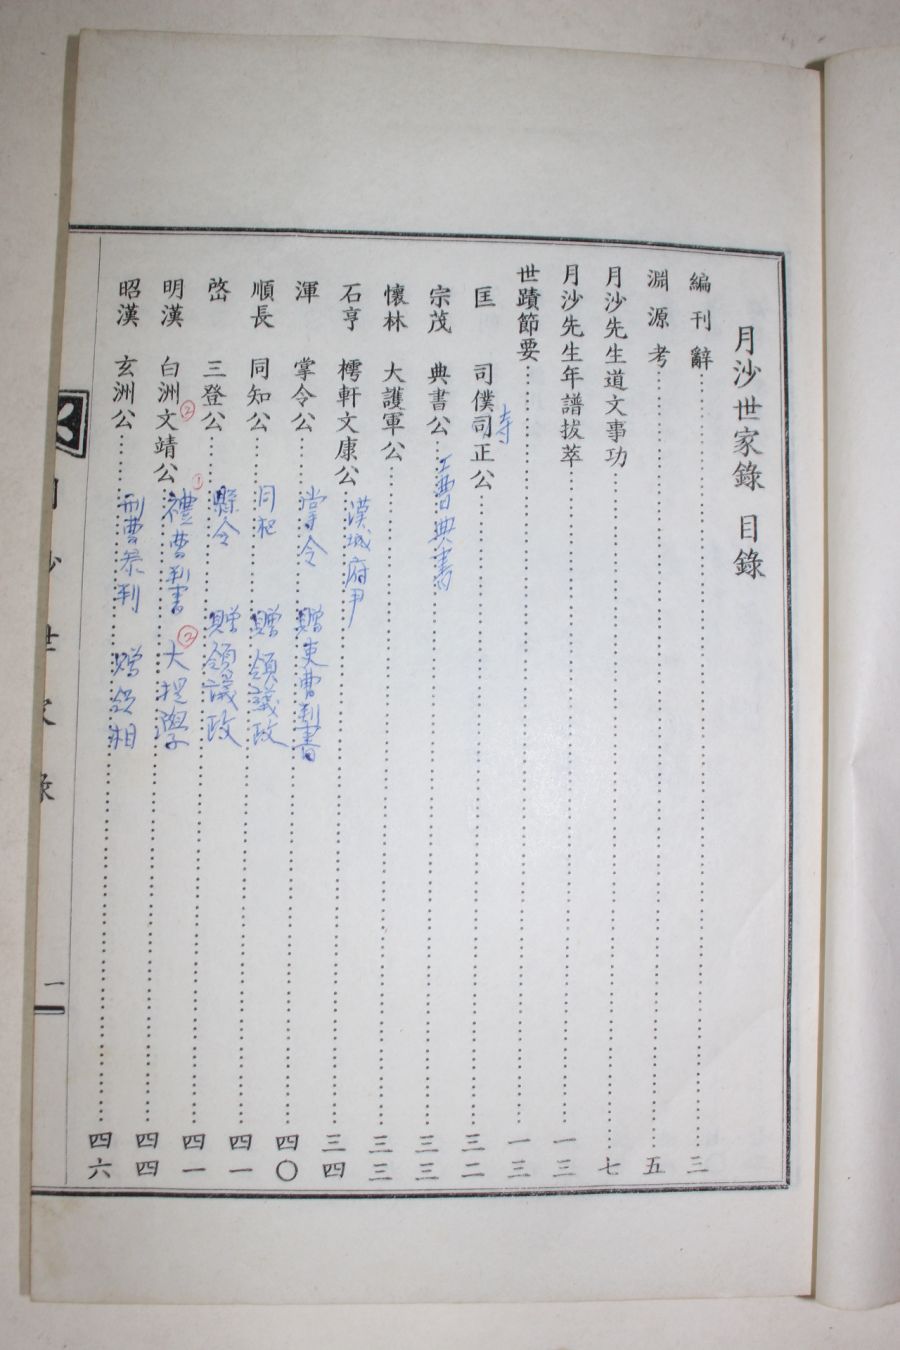 月沙世家錄 目錄
編刊辭 三
淵源考 五
月沙先生道文事功 七
月沙先生年譜拔萃 一三
世蹟節要 一三
匡 司僕司正公 三二
寺
宗茂 典書公 三三
工曹典書
懷林 大護軍公 三三
石亨 樗軒文康公 三四
漢城府尹
渾 掌令公 四〇
掌令 贈吏曹判書
順長 同知公 四一
同知 贈領議政
啓 三登公 四一
縣令 贈領議政
明漢 白洲文靖公 四四
② ① 禮曹判書 ② 大提學
昭漢 玄洲公 四六
刑曹叅判 贈領相
世家
一